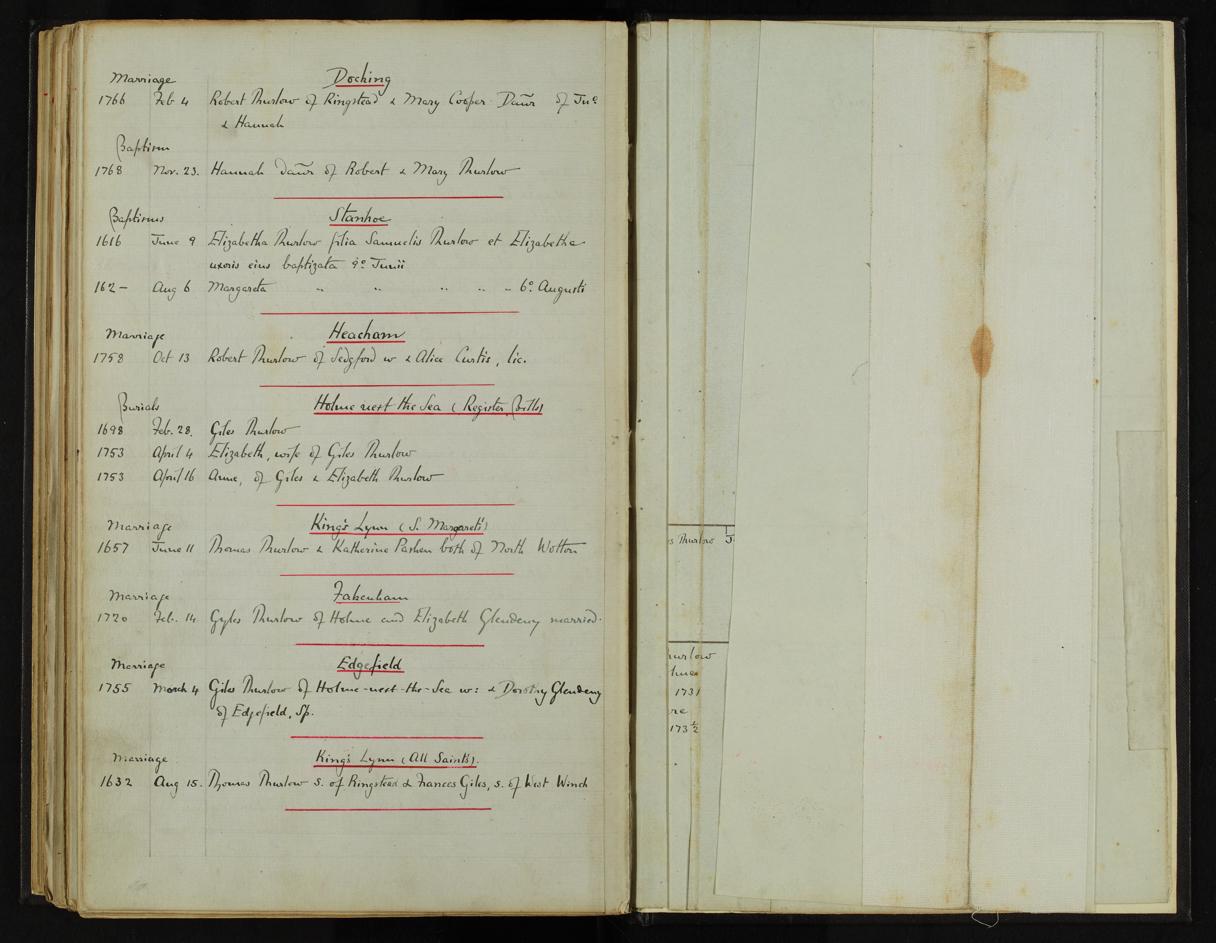 Marriage Docking
1766 Feb 4 Robert Thurlow of Ringstead & Mary Cooper Daur of Jno
& Hannah
Baptism
1768 Nov. 23. Hannah Daur of Robert & Mary Thurlow
Baptisms Stanhoe
1616 June 9 Elizabetha Thurlow filia Samuelis Thurlow et Elizabetha
uxoris eius baptizata 9o Junii
162- Aug 6 Margareta " " " " " 6o Augusti
Marriage Heacham
1758 Oct 13 Robert Thurlow of Sedgford w & Alice Curtis, lic.
Burials Holme next the Sea (Register Bills)
1698 Feb. 28. Giles Thurlow
1753 April 4 Elizabeth, wife of Giles Thurlow
1753 April 16 Anne, of Giles & Elizabeth Thurlow
Marriage King's Lynn (S. Margaret's)
1657 June 11 Thomas Thurlow & Katherine Pashen both of North Wotton
Marriage Fakenham
1720 Feb. 14 Gyles Thurlow of Holme and Elizabeth Glendeny married.
Marriage Edgefield
1755 March 4 Giles Thurlow of Holme-next-the-Sea w: & Dorothy Glendeny
of Edgefield, Sp.
Marriage King's Lynn (All Saints).
1632 Aug 15. Thomas Thurlow s. of Ringstead & Frances Giles, s. of West Winch
s Thurlow J
hurlow
1731
re
173½